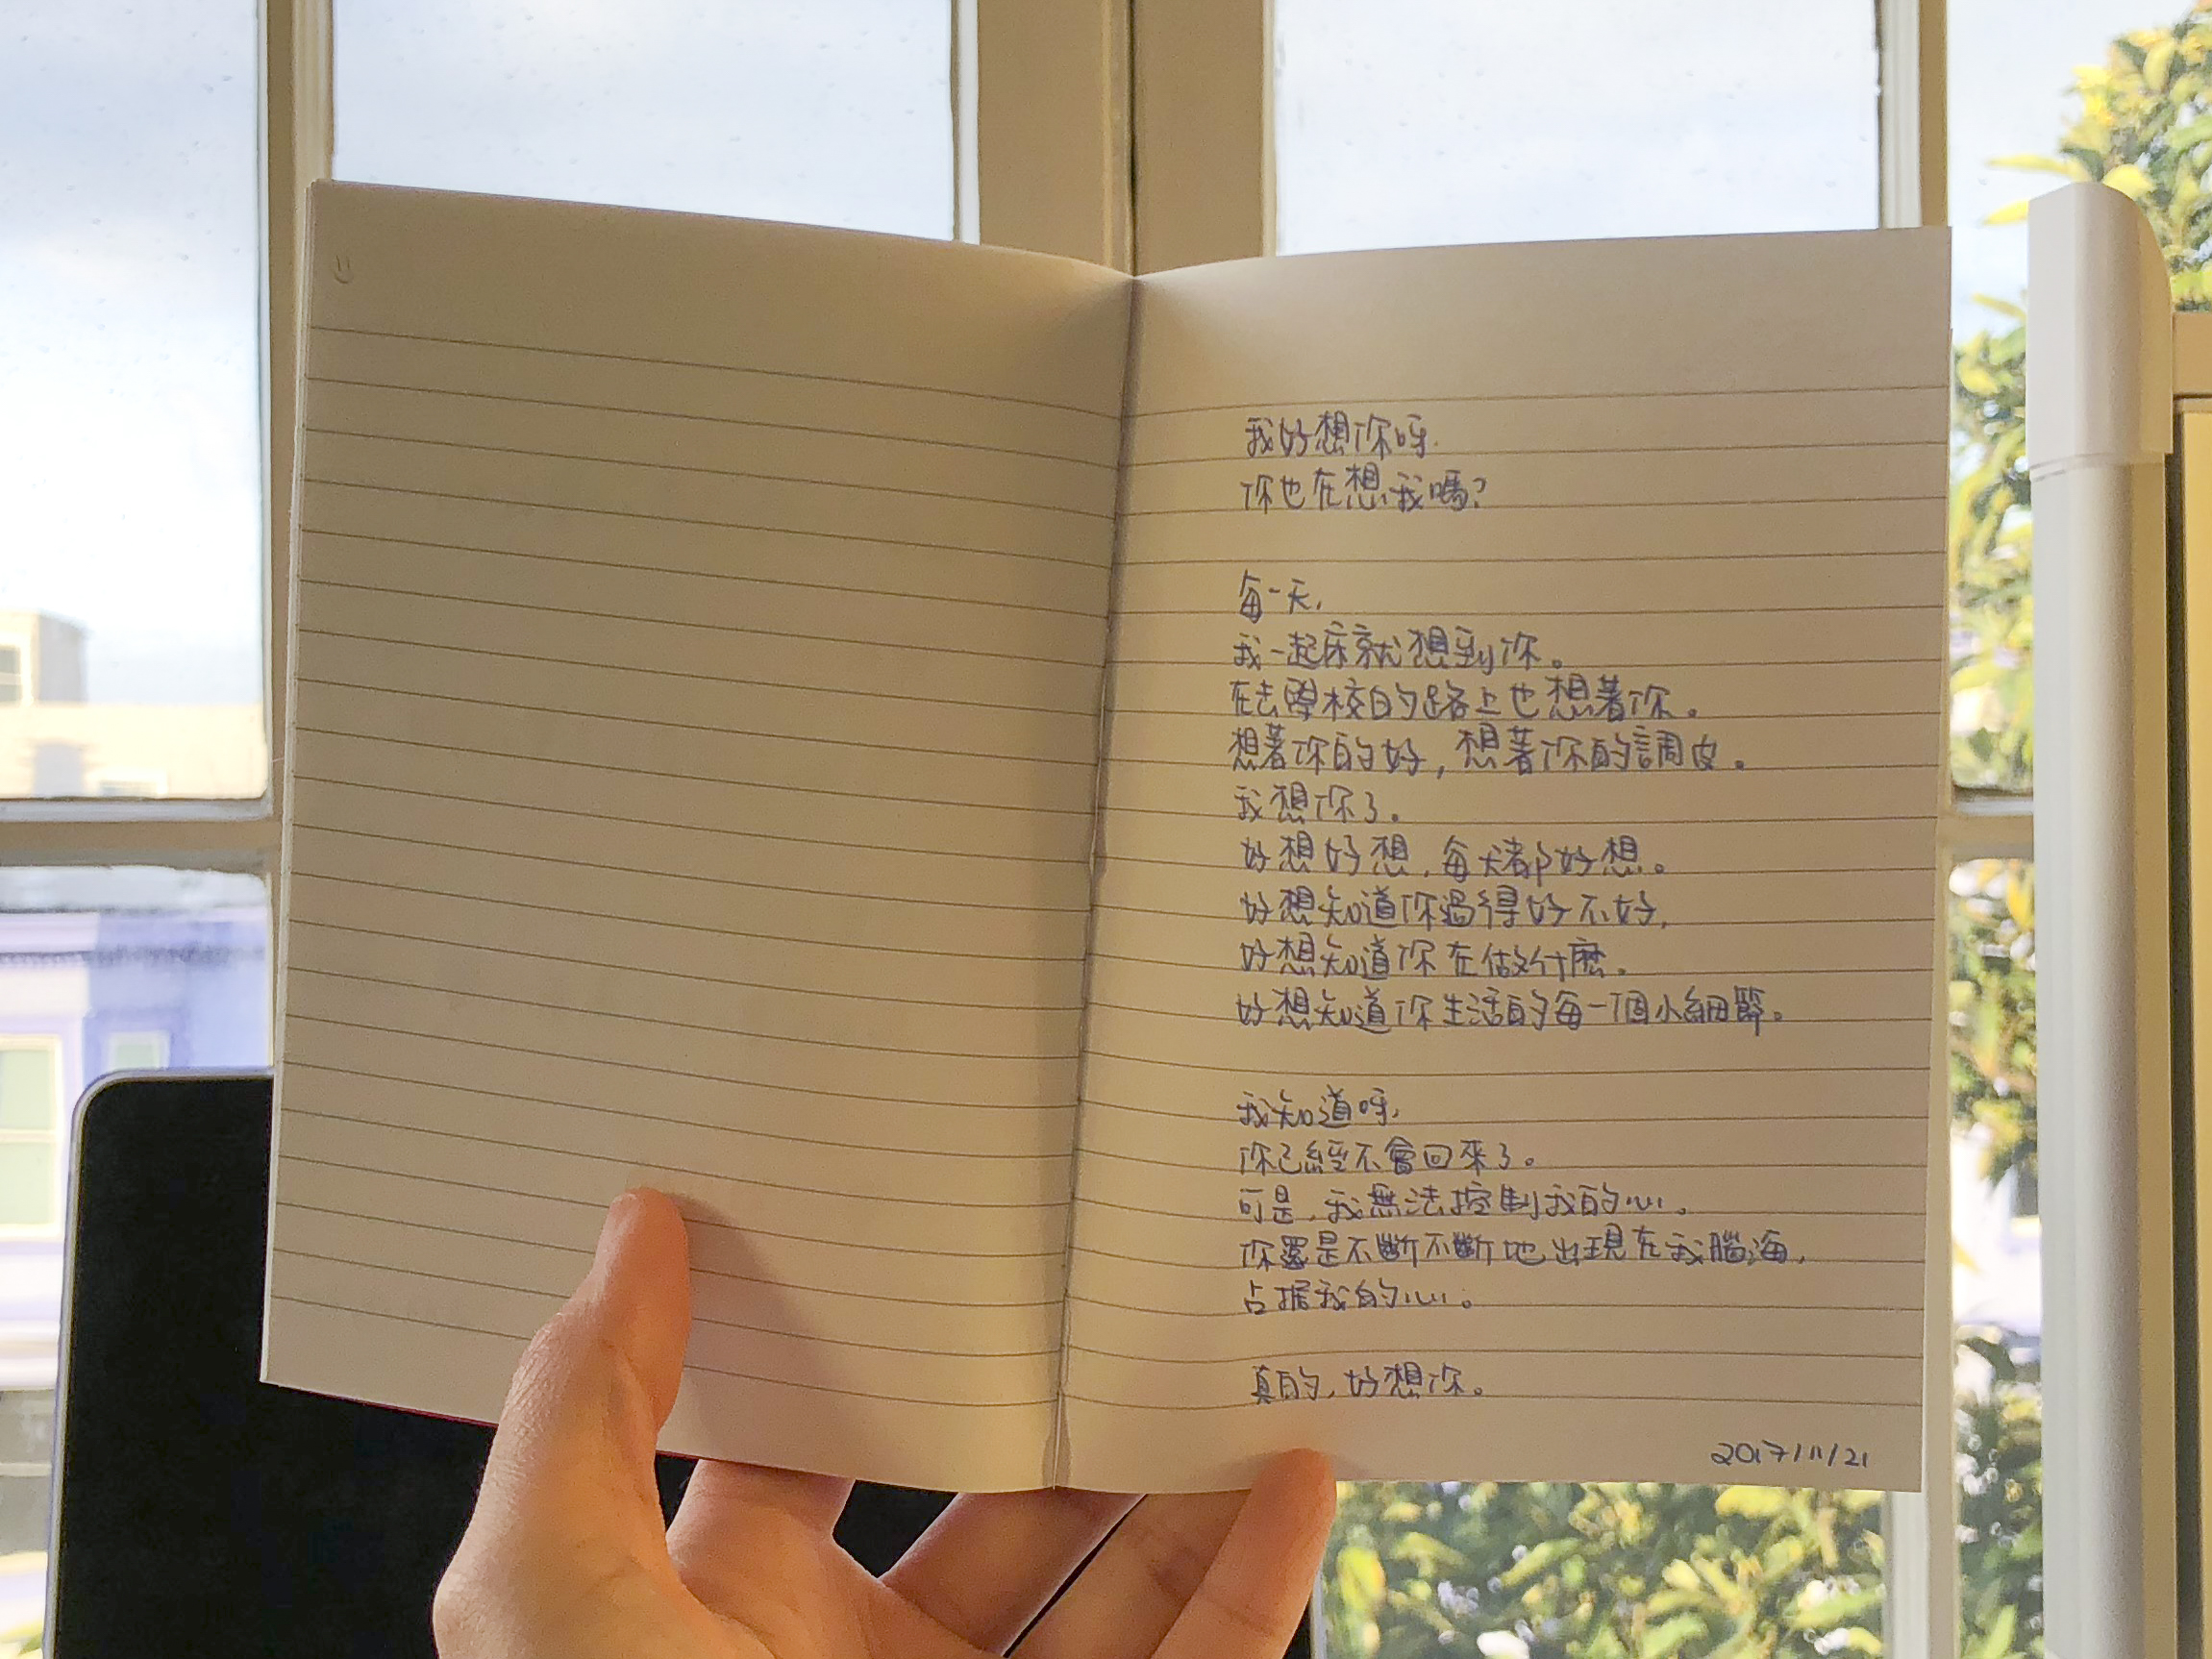 我好想你呀.
你也在想我嗎?
每一天,
我一起床就想到你。
在去學校的路上也想著你。
想著你的好,想著你的調皮。
我想你了。
好想好想,每天都好想。
好想知道你過得好不好,
好想知道你在做什麼.
好想知道你生活的每一個小細節。
我知道呀,
你已經不會回來了。
可是,我無法控制我的心。
你還是不斷不斷地出現在我腦海,
占据我的心。
真的,好想你。
2017/11/21